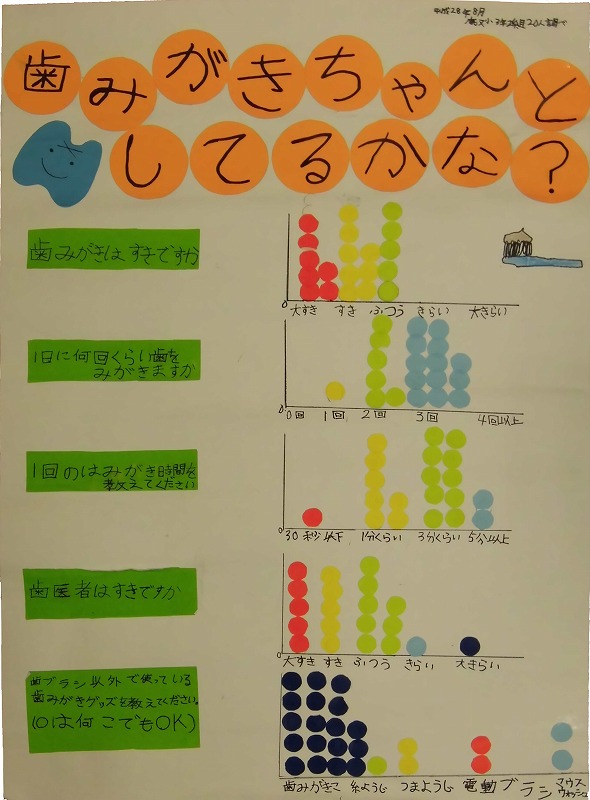 平成28年8月
歯みがきちゃんと
してるかな?
歯みがきはすきですか
0
大すき すき ふつう きらい 大きらい
1日に何回くらい歯を
みがきますか
0
0回 1回 2回 3回 4回以上
1回のはみがき時間を
教えてください
0
30秒以下 1分くらい 3分くらい 5分以上
歯医者はすきですか
0
大すき すき ふつう きらい 大きらい
歯ブラシ以外で使っている
歯みがきグッズを教えてください。
(0は何こでもOK)
0
歯みがきこ 糸ようじ つまようじ 電動ブラシ マウス
ウォッシュ